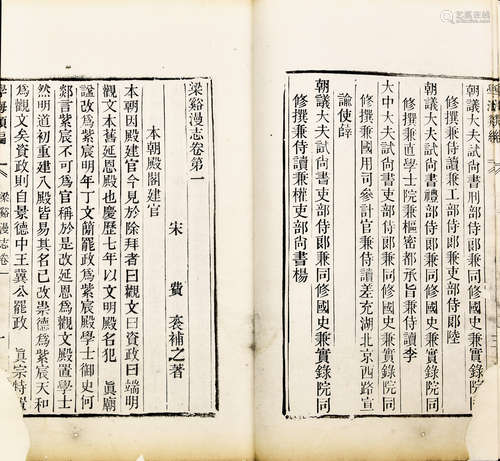 朝議大夫試尚書刑部侍郎兼同修國史兼實錄院同
修撰兼侍讀兼工部侍郎兼吏部侍郎陸
朝議大夫試尚書禮部侍郎兼同修國史兼實錄院同
修撰兼直學士院兼樞密都承旨兼侍讀李
大中大夫試尚書吏部侍郎兼同修國史兼實錄院同
修撰兼國用司參計官兼侍讀差充湖北京西路宣
諭使薛
朝議大夫試尚書吏部侍郎兼同修國史兼實錄院同
修撰兼侍讀兼權吏部尚書楊
梁谿漫志卷第一
宋 費 袞補之著
本朝殿閣建官
本朝因殿建官今見於除拜者曰觀文曰資政曰端明
觀文本舊延恩殿也慶歷七年以文明殿名犯 眞廟
諡改爲紫宸明年丁文簡罷政爲紫宸殿學士御史何
郯言紫宸不可爲官稱於是改延恩爲觀文殿置學士
然明道初重建八殿皆易其名已改崇德爲紫宸天和
爲觀文矣資政則自景德中王冀公罷政 眞宗特置
學海類編
梁谿漫志卷一
一